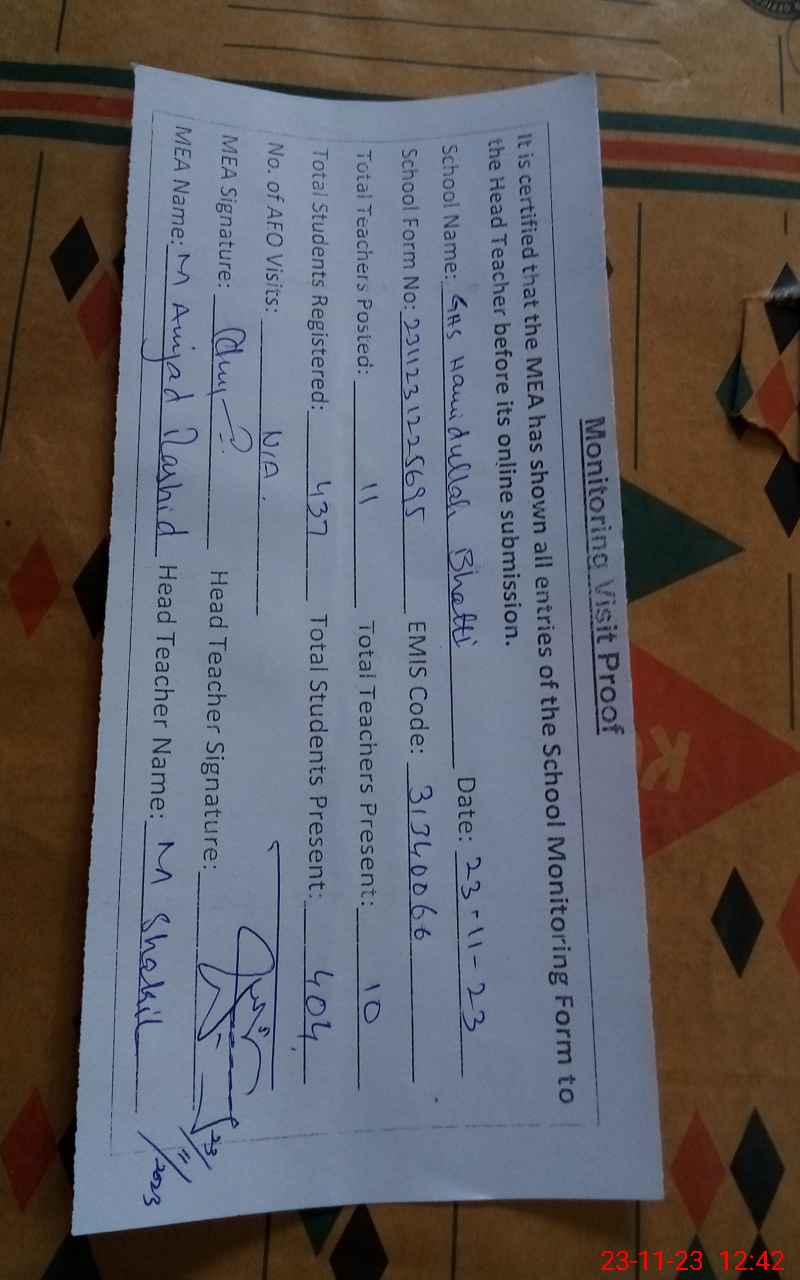 Monitoring Visit Proof
It is certified that the MEA has shown all entries of the School Monitoring Form to
the Head Teacher before its online submission.
School Name: GHS Hamidullah Bhatti Date: 23-11-23
School Form No: 2311231225695 EMIS Code: 31340066
Total Teachers Posted: 11 Total Teachers Present: 10
Total Students Registered: 437 Total Students Present: 404
No. of AEO Visits: N/A.
MEA Signature: Head Teacher Signature:
MEA Name: M Amjad Rashid Head Teacher Name: M Shakil
23/11/2023
23-11-23 12:42